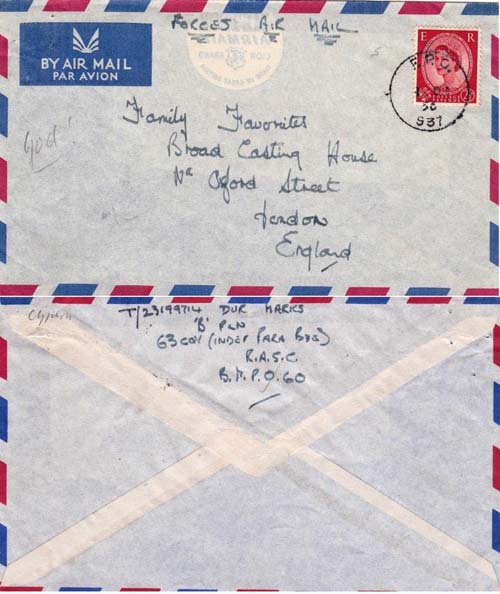 FORCES AIR MAIL
BY AIR MAIL
PAR AVION
E R
F.P.O.
56
937
Family Favorites
Broad Casting House
Nr Oxford Street
London
England
Cyprus
T/23199714 DVR MARKS
'B' PLN
63 COY (INDEP PARA BDE)
R.A.S.C.
B.M.P.O. 60